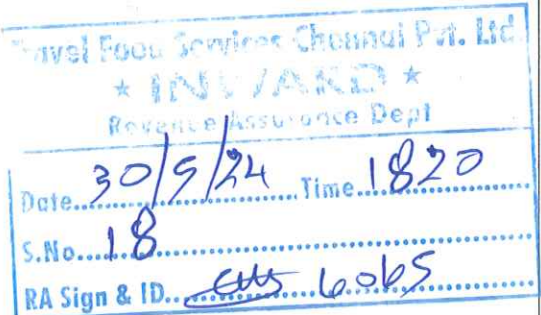 Travel Food Services Chennai Pvt. Ltd
* INWARD *
Revenue Assurance Dept
Date....30/5/24....Time..1820
S.No...18
RA Sign & ID.. 6065